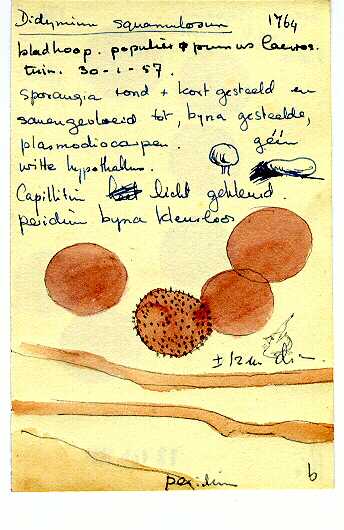 Didymium squamulosum 1764
bladhoop. populier & prunus laeroc.
tuin. 30-1-57.
sporangia rond + kort gesteeld en
samengevloeid tot, byna gesteelde,
plasmodiocarpen. géén
witte hypothallus.
Capillitium licht gekleurd.
peridium byna kleurloos
± 12 m di
peridium
b